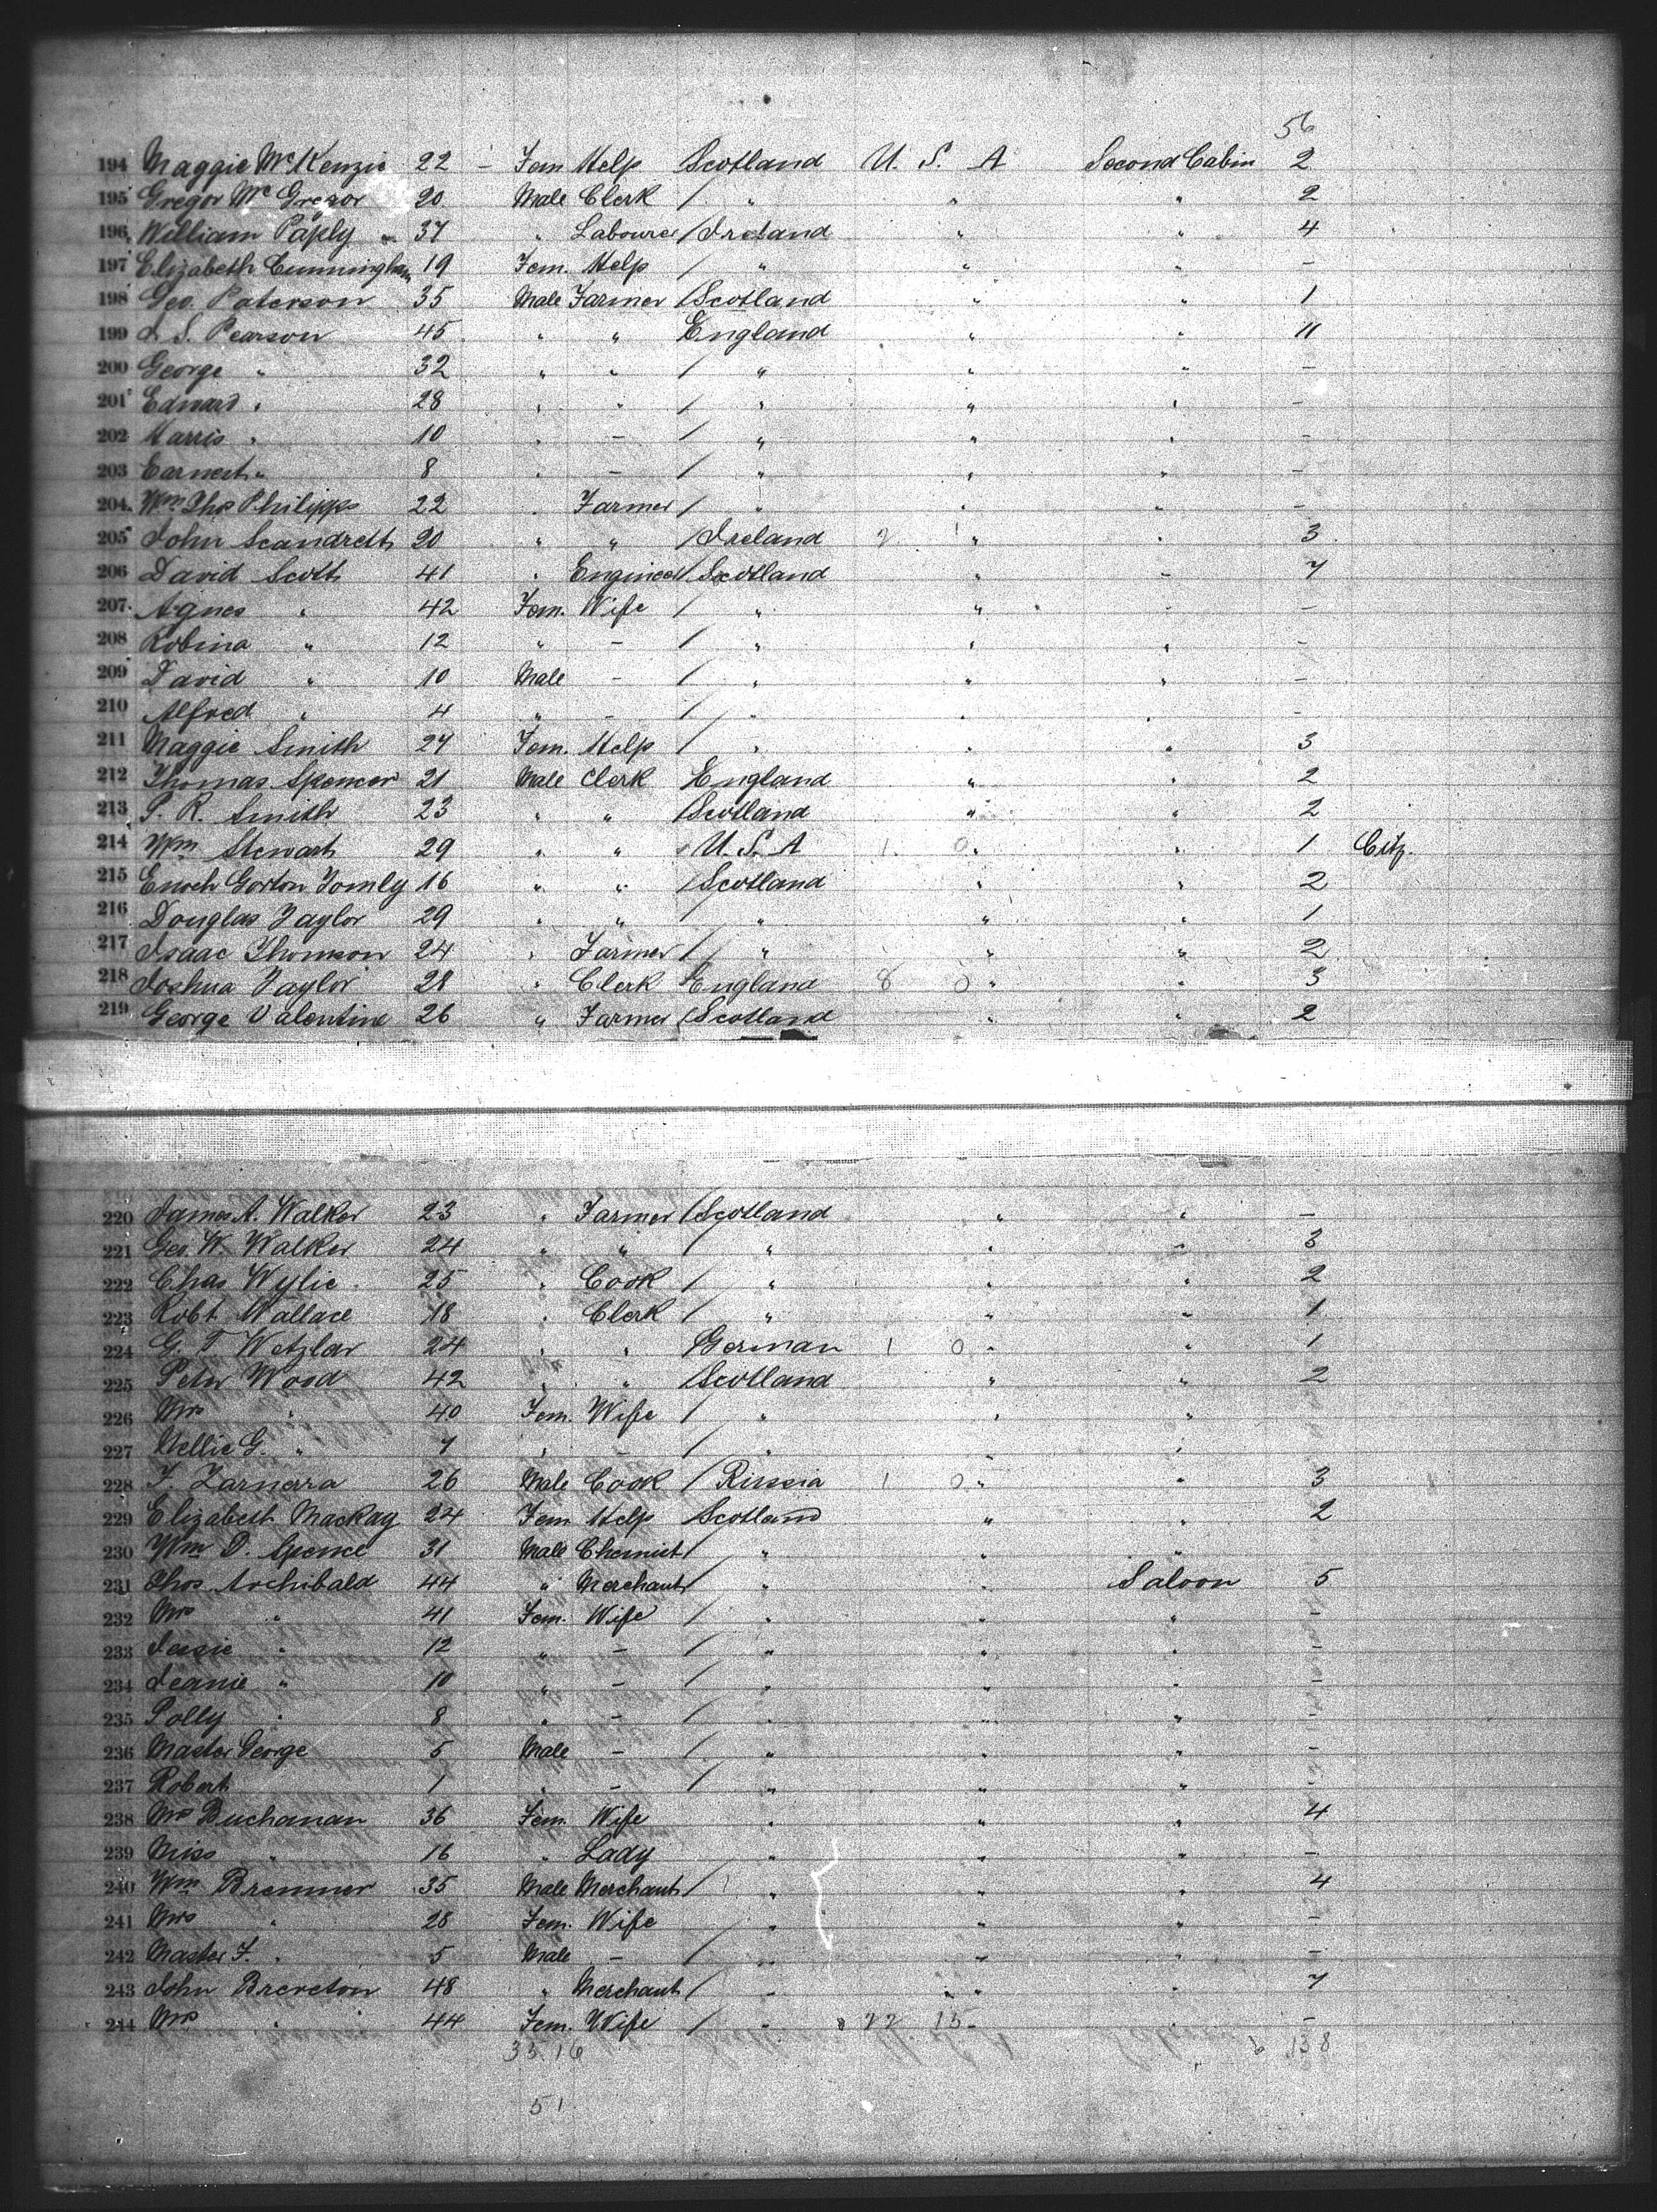 56
194 Maggie McKenzie 22 - Fem Help Scotland U. S. A Second Cabin 2
195 Gregor McGregor 20 Male Clerk / " " " 2
196 William 37 " Labourer / Ireland " " 4
197 Elizabeth Cunningham 19 Fem. Help / " " " -
198 Geo. Paterson 35 Male Farmer / Scotland " " 1
199 S. Pearson 45 " " England " " 11
200 George " 32 " " / " " " -
201 Edward " 28 " " / " " " -
202 Harris " 10 " - / " " " -
203 Earnest " 8 " - / " " " -
204 Wm Thos Philipps 22 " Farmer / " " " -
205 John Scandrett 20 " " / Ireland 2 1 " " 3
206 David Scott 41 " Engineer / Scotland " " 7
207 Agnes " 42 Fem. Wife / " " " -
208 Robina " 12 " - / " " " -
209 David " 10 Male - / " " " -
210 Alfred " 4 " - / " " " -
211 Maggie Smith 27 Fem. Help / " " " 3
212 Thomas Spencer 21 Male Clerk England " " 2
213 P. R. Smith 23 " " / Scotland " " 2
214 Wm Stewart 29 " " U. S. A 1 0 " " 1 Citz.
215 Enoch Gorton 16 " " / Scotland " " 2
216 Douglas Taylor 29 " " / " " " 1
217 Isaac Thomson 24 " Farmer / " " " 2
218 Joshua Taylor 28 " Clerk England 8 0 " " 3
219 George Valentine 26 " Farmer / Scotland " " 2
220 James A. Walker 23 " Farmer / Scotland " " -
221 Geo. W. Walker 24 " " / " " " 3
222 Chas Wylie 25 " Cook / " " " 2
223 Robt Wallace 18 " Clerk / " " " 1
224 G. T Wetzlar 24 " " German 1 0 " " 1
225 Peter Wood 42 " " / Scotland " " 2
226 Mrs " 40 Fem. Wife / " " "
227 Nellie G. " 7 " - / " " "
228 26 Male Cook / Russia 1 0 " " 3
229 Elizabeth Mackay 24 Fem Help Scotland " " 2
230 Wm D. Spence 31 Male Chemist / " " "
231 Thos. Archibald 44 " Merchant / " " Saloon 5
232 Mrs " 41 Fem. Wife / " " " -
233 Jessie " 12 " - / " " " -
234 Jeanie " 10 " - / " " " -
235 Polly " 8 " - / " " " -
236 Master George 5 Male - / " " " -
237 Robert 1 " - / " " " -
238 Mrs Buchanan 36 Fem. Wife " " " 4
239 Miss " 16 " Lady " " " -
240 Wm Bremner 35 Male Merchant / " " " 4
241 Mrs " 28 Fem. Wife " " " -
242 Master J. " 5 Male - / " " " -
243 John Brereton 48 " Merchant / " " " 7
244 Mrs " 44 Fem. Wife / " 22 15 " -
35.16 138
51